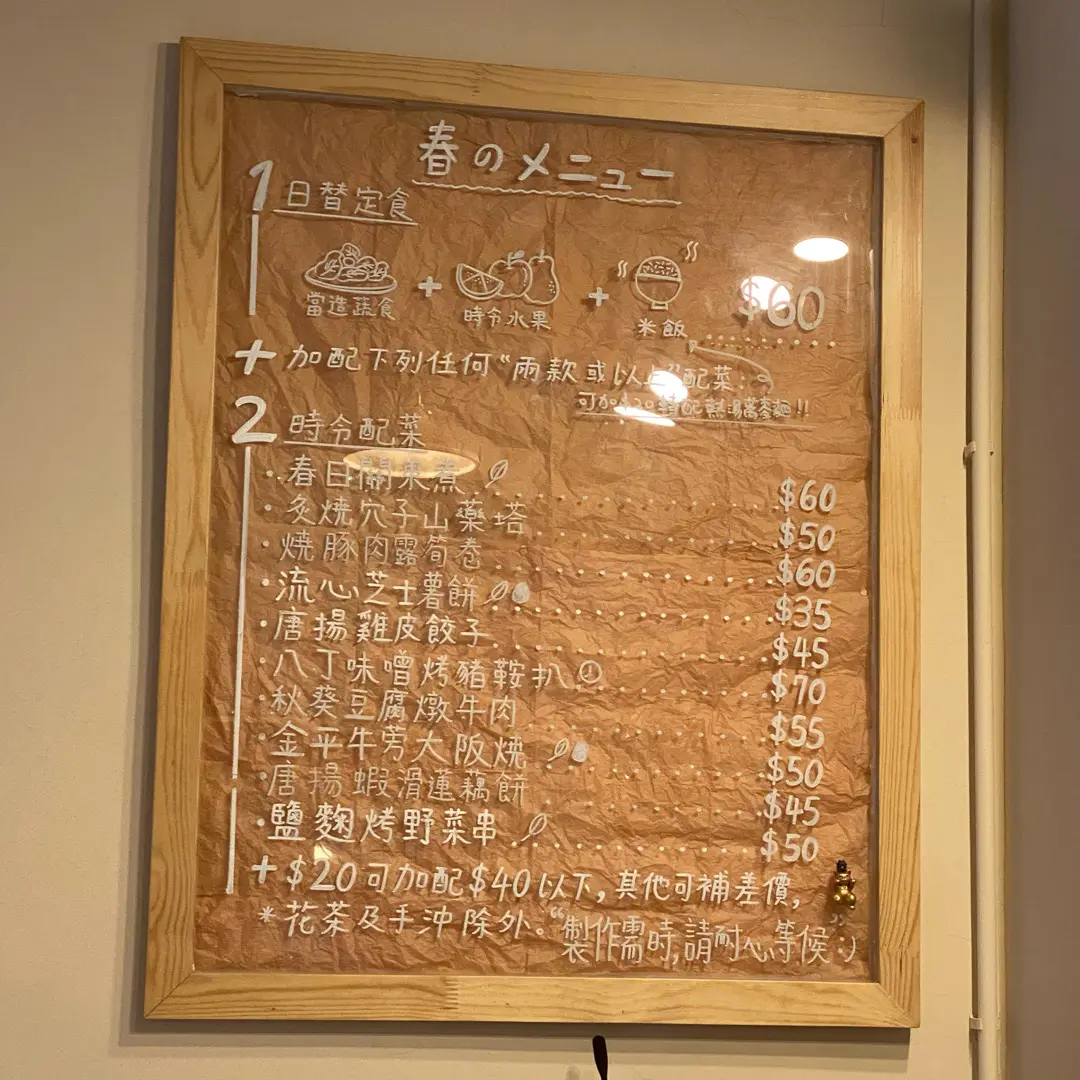 春のメニュー
1 日替定食
當造蔬食 + 時令水果 + 米飯 $60
+ 加配下列任何“兩款或以上”配菜:
可加$20轉配熱湯蕎麥麵!!
2 時令配菜
·春日關東煮 $60
·炙燒穴子山藥塔 $50
·燒豚肉露筍卷 $60
·流心芝士薯餅 $35
·唐揚雞皮餃子 $45
·八丁味噌烤豬鞍扒 $70
·秋葵豆腐燉牛肉 $55
·金平牛蒡大阪燒 $50
·唐揚蝦滑蓮藕餅 $45
·鹽麴烤野菜串 $50
+$20可加配$40以下,其他可補差價,
*花茶及手沖除外。“製作需時,請耐心等候”:)